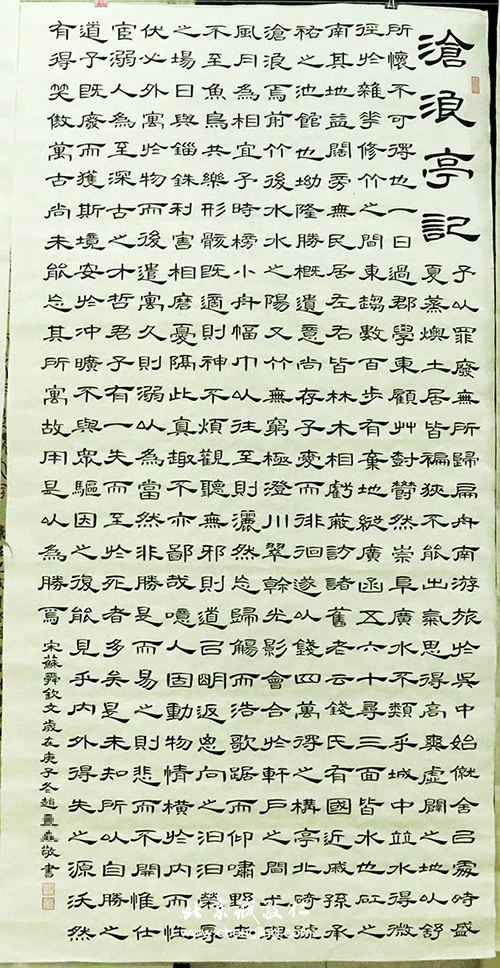 滄浪亭記
予以罪廢無所歸扁舟南游旅於吳中始僦舍以處時盛
夏蒸燠土居皆褊狹不能出氣思得高爽虛闢之地以舒
所懷不可得也一日過郡學東顧艸樹鬱然崇阜廣水不類乎城中並水得微
徑於雜花修竹之間東趨數百步有棄地縱廣函五六十尋三面皆水也矼之
南其地益闊旁無民居左右皆林木相虧蔽訪諸舊老云錢氏有國近戚孫承
祐之池館也坳隆勝概遺意尚存予愛而徘徊遂以錢四萬得之構亭北碕號
滄浪焉前竹後水水之陽又竹無窮極澄川翠幹光影會合於軒戶之間尤與
風月為相宜予時榜小舟幅巾以往至則灑然忘歸觴而浩歌踞而仰嘯野老
不至魚鳥共樂形骸既適則神不煩觀聽無邪則道以明返思向之汩汩榮辱
之場日與錙銖利害相磨戛隔此真趣不亦鄙哉噫人固動物情橫於內而性
伏必外寓於物而後遣寓久則溺以為當然非勝是而易之則悲而不開惟仕
宦溺人為至深古之才哲君子有一失而至於死者多矣是未知所以自勝之
道予既廢而獲斯境安於沖曠不與眾驅因之復能見乎內外得失之源沃然
有得笑傲萬古尚未能忘其所寓故用是以為勝焉
宋蘇舜欽文歲在庚子冬趙敬書